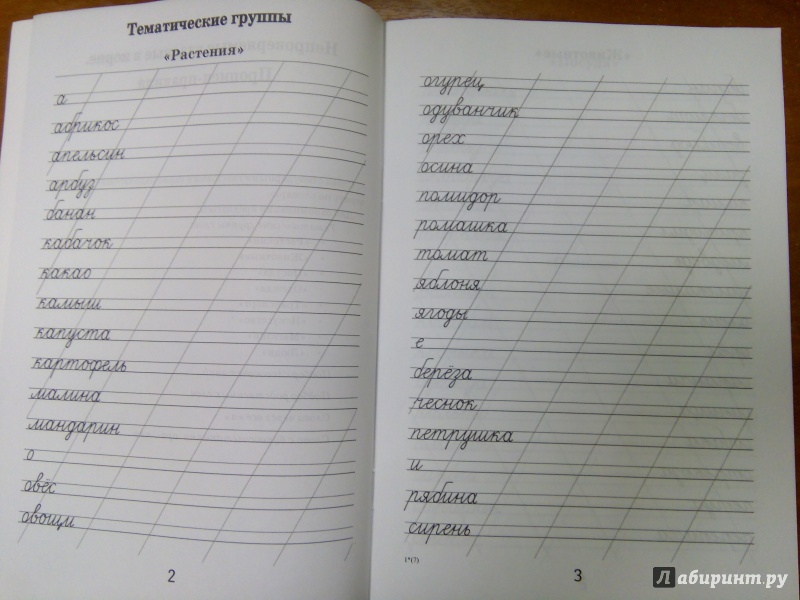 Тематические группы
«Растения»
а
абрикос
апельсин
арбуз
банан
кабачок
какао
камыш
капуста
картофель
малина
мандарин
о
овёс
овощи
2
огурец
одуванчик
орех
осина
помидор
ромашка
томат
яблоня
ягоды
е
берёза
чеснок
петрушка
и
рябина
сирень
1*(7)
3
Лабиринт.ру